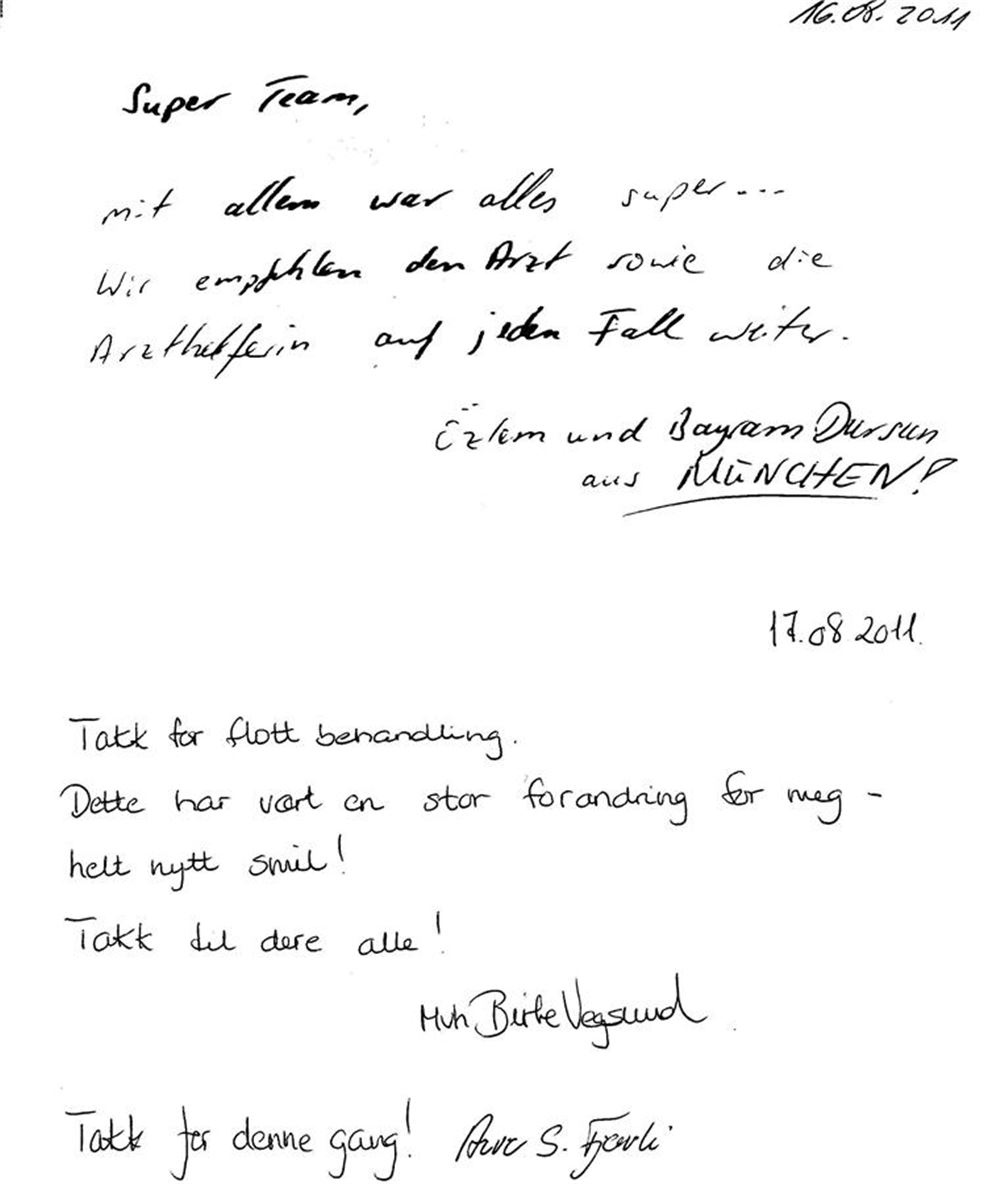 16.08.2011
Super Team,
mit allem war alles super...
Wir empfehlen den Arzt sowie die
Arzthelferin auf jeden Fall weiter.
Özlem und Bayram Dursun
aus MÜNCHEN!
17.08 2011.
Takk for flott behandling.
Dette har vært en stor forandring for meg -
helt nytt smil!
Takk til dere alle!
Mvh Birte Vegsund
Takk for denne gang! S.